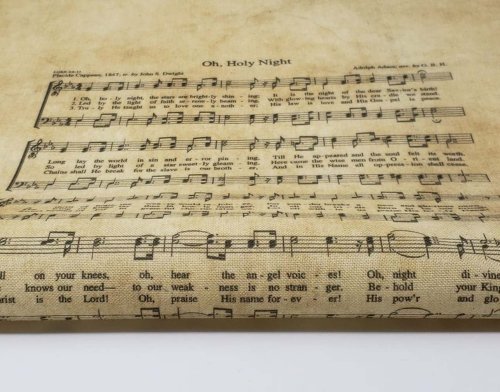 Oh, Holy Night
Placide Cappeau, 1847; tr. by John S. Dwight
Adolph Adam; arr. by G. B. H.
1. Oh, ho - ly night, the stars are bright - ly shin - ing. It is the night of the dear Sav - ior's birth!
2. Led by the light of faith se - rene - ly beam - ing. With glow - ing hearts by His cra - dle we stand.
3. Tru - ly He taught us to love one an - oth - er. His law is love and His Gos - pel is peace.
Long lay the world in sin and er - ror pin - ing. Till He ap - peared and the soul felt its worth.
So led by light of a star sweet - ly gleam - ing. Here come the wise men from O - ri - ent land.
Chains shall He break for the slave is our broth - er. And in His Name all op - pres - sion shall
on your knees, oh, hear the an - gel voic - es! Oh, night di - vine
knows our need— to our weak - ness is no stran - ger. Be - hold your King
rist is the Lord! Oh, praise His name for - ev - er! His pow'r and glo